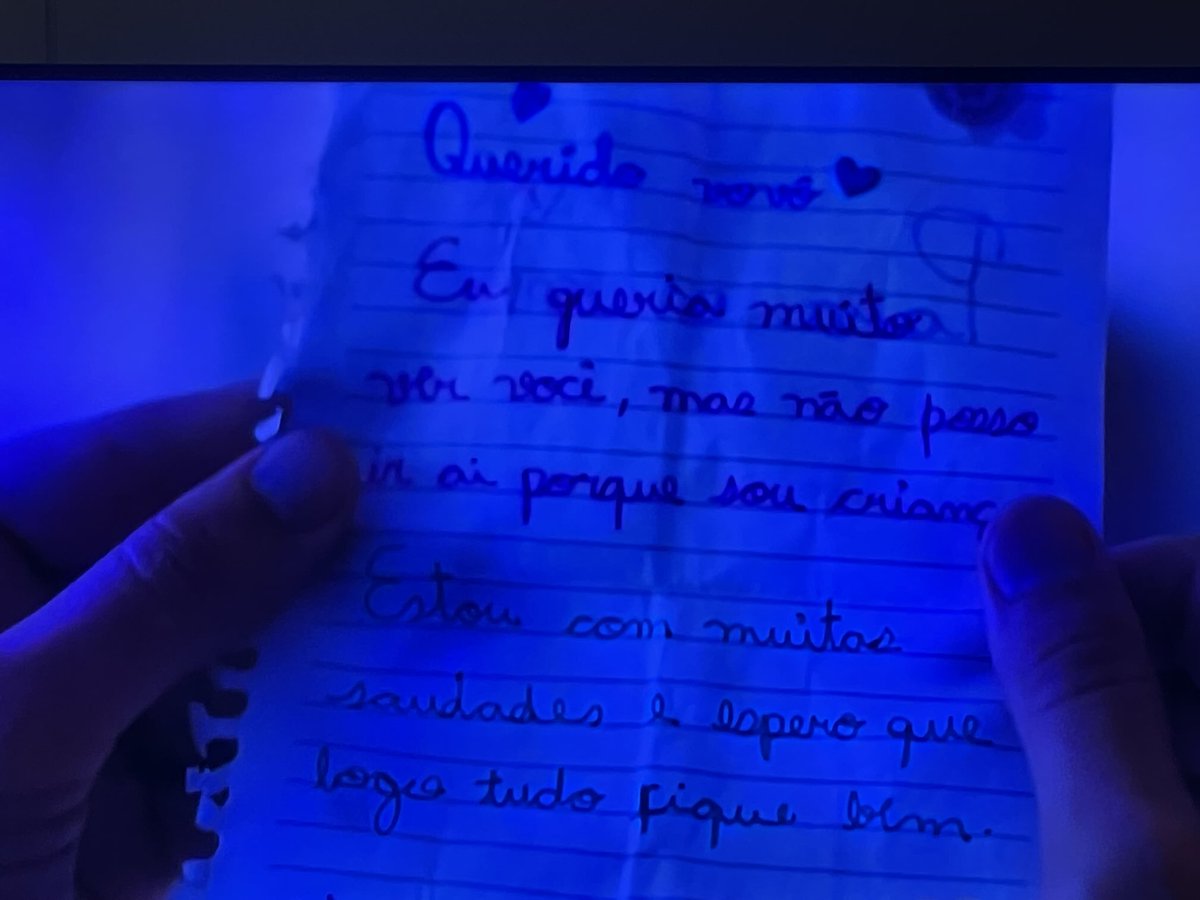 Querido vovô
Eu queria muito
ver você, mas não posso
ir ai porque sou crianç
Estou com muitas
saudades e espero que
logo tudo fique bem.